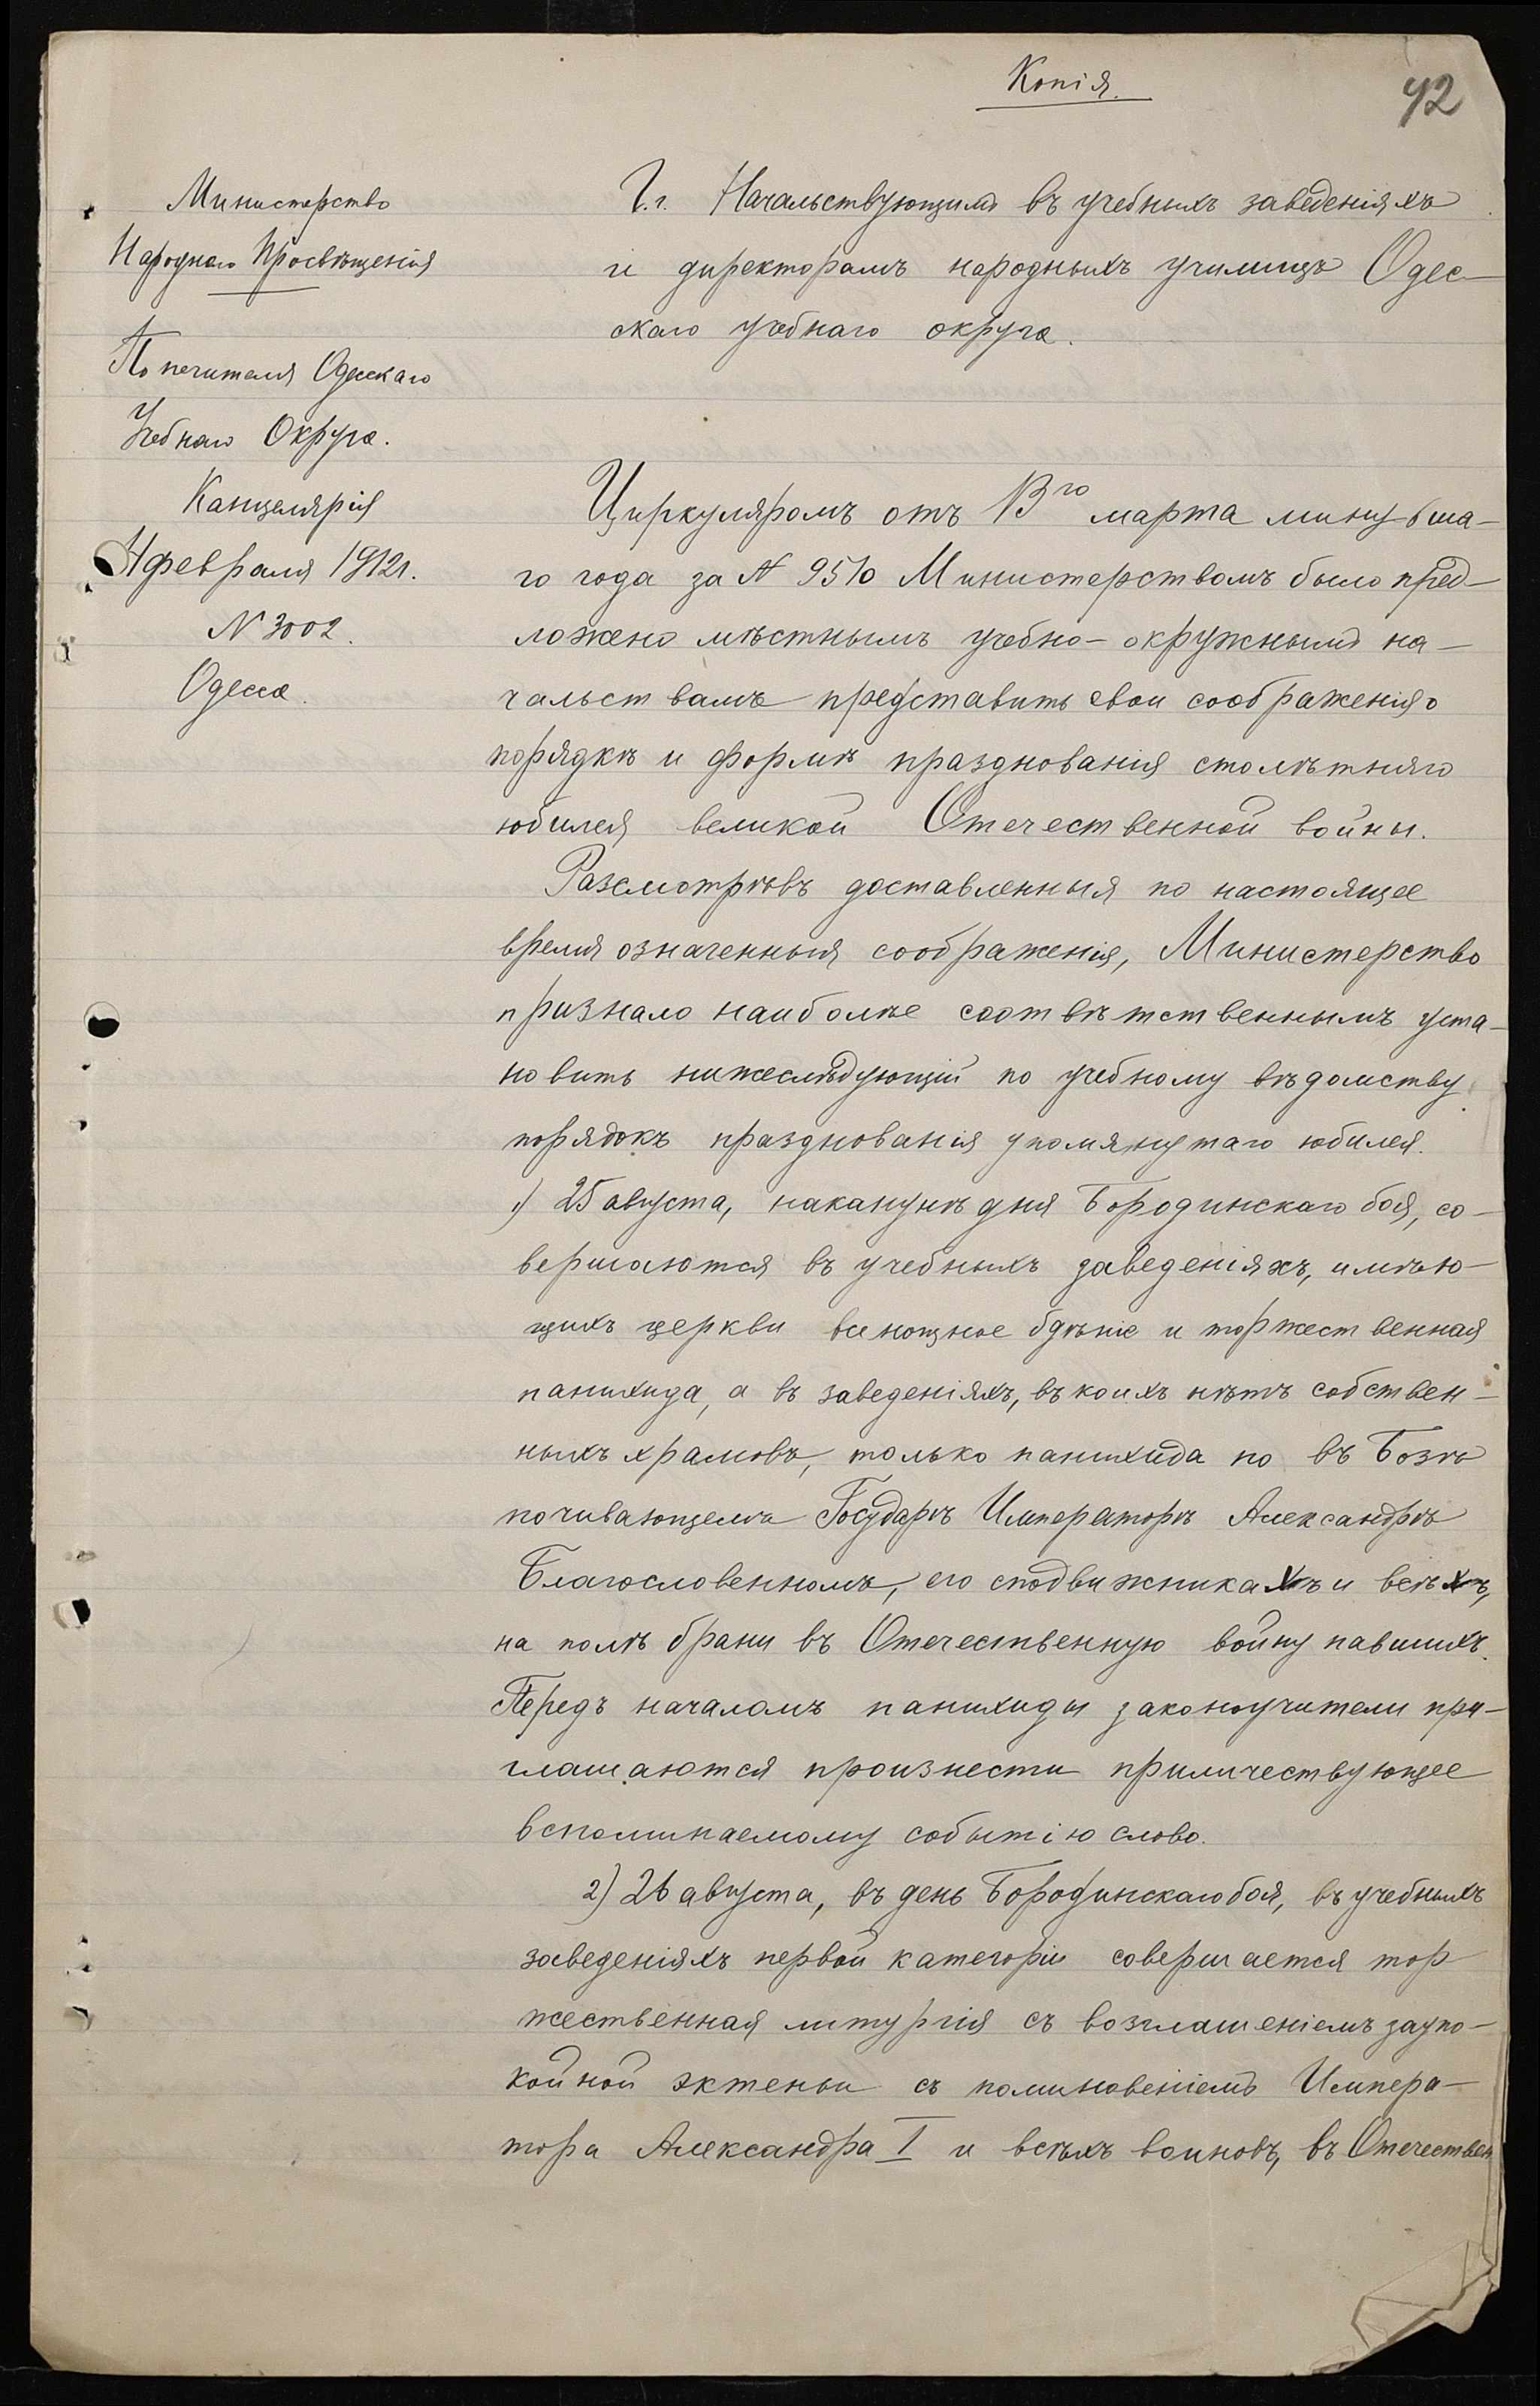 Копія.
42
Министерство
Народнаго Просвѣщенія
Попечителя Одесскаго
Учебнаго Округа.
Канцелярія
февраля 1912 г.
№ 3002.
Одесса.
Г.г. Начальствующимъ въ учебныхъ заведеніяхъ
и директорамъ народныхъ училищъ Одес-
скаго учебнаго округа.
Циркуляромъ отъ 13го марта минувша-
го года за № 9510 Министерствомъ было пред-
ложено мѣстнымъ учебно-окружнымъ на-
чальствамъ представить свои соображенія о
порядкѣ и формѣ празднованія столѣтняго
юбилея великой Отечественной войны.
Разсмотрѣвъ доставленныя по настоящее
время означенныя соображенія, Министерство
признало наиболѣе соотвѣтственнымъ уста-
новить нижеслѣдующій по учебному вѣдомству
порядокъ празднованія упомянутаго юбилея.
1) 25 августа, наканунѣ дня Бородинскаго боя, со-
вершаются въ учебныхъ заведеніяхъ, имѣю-
щихъ церкви всенощное бдѣніе и торжественная
панихида, а въ заведеніяхъ, въ коихъ нѣтъ собствен-
ныхъ храмовъ, только панихида по въ Бозѣ
почивающемъ Государѣ Императорѣ Александрѣ
Благословенномъ, его сподвижникахъ и всѣхъ,
на полѣ брани въ Отечественную войну павшихъ.
Передъ началомъ панихиды законоучители при-
глашаются произнести приличествующее
вспоминаемому событію слово.
2) 26 августа, въ день Бородинскаго боя, въ учебныхъ
заведеніяхъ первой категоріи совершается тор
жественная литургія съ возглашеніемъ заупо-
койной эктеньи съ поминовеніемъ Импера-
тора Александра I и всѣхъ воиновъ, въ Отечествен